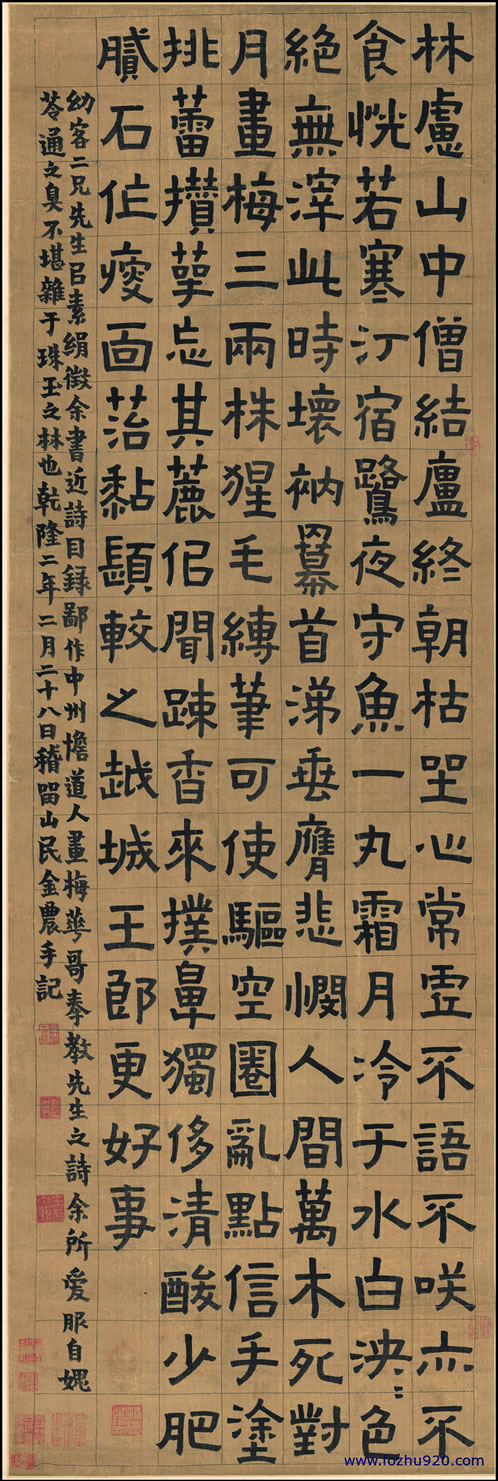 林慮山中僧結廬終朝枯坐心常虛不語不咲亦不
食恍若寒汀宿鷺夜守魚一丸霜月冷于水白泱〻色
絕無滓此時壞衲冪首涕垂膺悲憫人間萬木死對
月畫梅三兩株猩毛縛筆可使驅空圈亂點信手塗
挑蕾攢萼忘其麄但聞踈香來撲鼻獨侈清酸少肥
膩石作瘦面苔黏顋較之越城王郎更好事
幼客二兄先生㠯素絹徵余書近詩目録鄙作中州憺道人畫梅華哥奉教先生之詩余所愛服自媿
苓通之臭不堪雜于珠玉之林也乾隆二年二月二十八日稽留山民金農手記
www.fozhu920.com